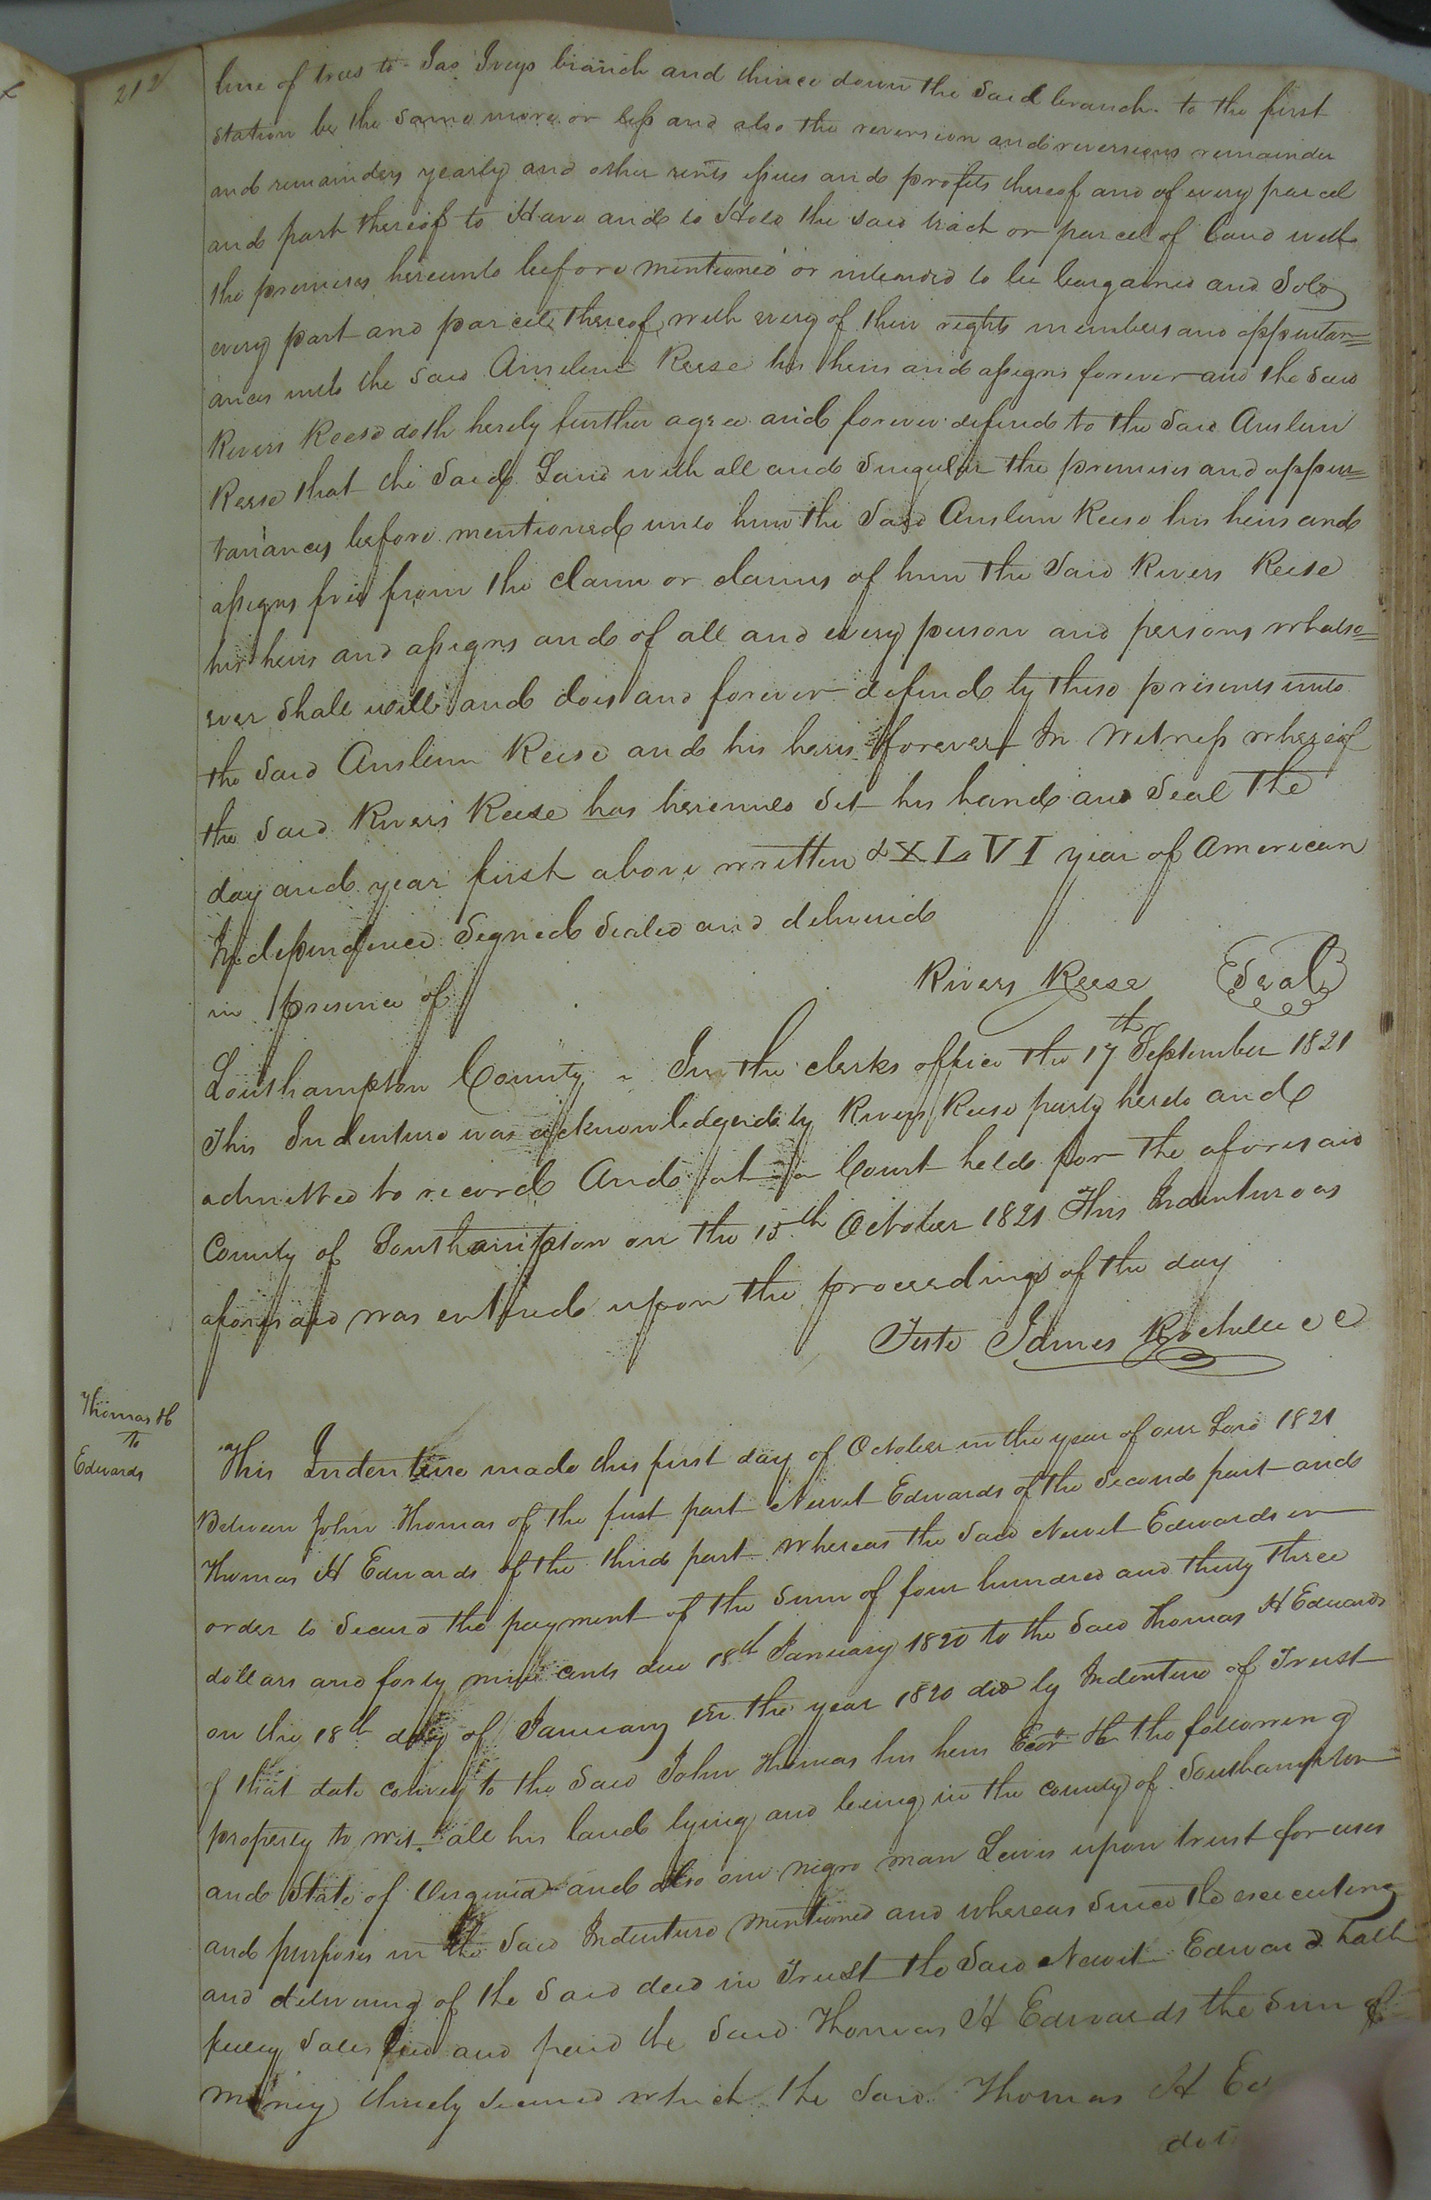 212
line of trees to Jas Iveys branch and thence down the Said branch to the first
Station be the same more or less and also the reversion and reversions remainder
and remainders yearly and other rents issues and profits thereof and of every parcel
and part thereof to Have and to Hold the said tract or parcel of Land with
the premises hereunto before mentioned or intended to be bargained and Sold
every part and parcels thereof with every of their rights members and appurten=
ances unto the Said Anslem Reese his heirs and assigns forever and the Said
Rivers Reese doth hereby further agree and forever defend to the Said Anslem
Reese that the Said Land with all and Singular the premises and appur=
tanances before mentioned unto him the Said Anslem Reese his heirs and
assigns free from the claim or claims of him the Said Rivers Reese
his heirs and assigns and of all and every person and persons whatso=
ever Shall will and does and forever defend by these presents unto
the Said Anslem Reese and his heirs forever In Witness whereof
the Said Rivers Reese has hereunto Set his hand and Seal the
day and year first above written & XLVI year of American
Independence Signed Sealed and delivered
in presence of
Rivers Reese Seal
Southampton County - In the clerks office the 17th September 1821
This Indenture was acknowledged by Rivers Reese party hereto and
admitted to record And at a Court held for the aforesaid
County of Southampton on the 15th October 1821 This Indenture as
aforesaid was entered upon the proceedings of the day
Teste James Rochelle CC
Thomas H
To
Edwards
This Indenture made this first day of October in the year of our Lord 1821
Between John Thomas of the first part Newit Edwards of the Second part and
Thomas H Edwards of the third part whereas the Said Newit Edwards in
order to Secure the payment of the Sum of four hundred and thirty three
dollars and forty nine cents due 18th January 1820 to the Said Thomas H Edwards
on the 18th day of January in the year 1820 did by Indenture of Trust
of that date convey to the Said John Thomas his heirs the following
property to wit all his land lying and being in the county of Southampton
and State of Virginia and also one negro man Lewis upon trust for uses
and purposes in the Said Indenture mentioned and whereas Since the executing
and delivering of the Said deed in Trust the Said Newit Edwards hath
fully Satisfied and paid the Said Thomas H Edwards the Sum of
money thereby Secured which the Said Thomas H